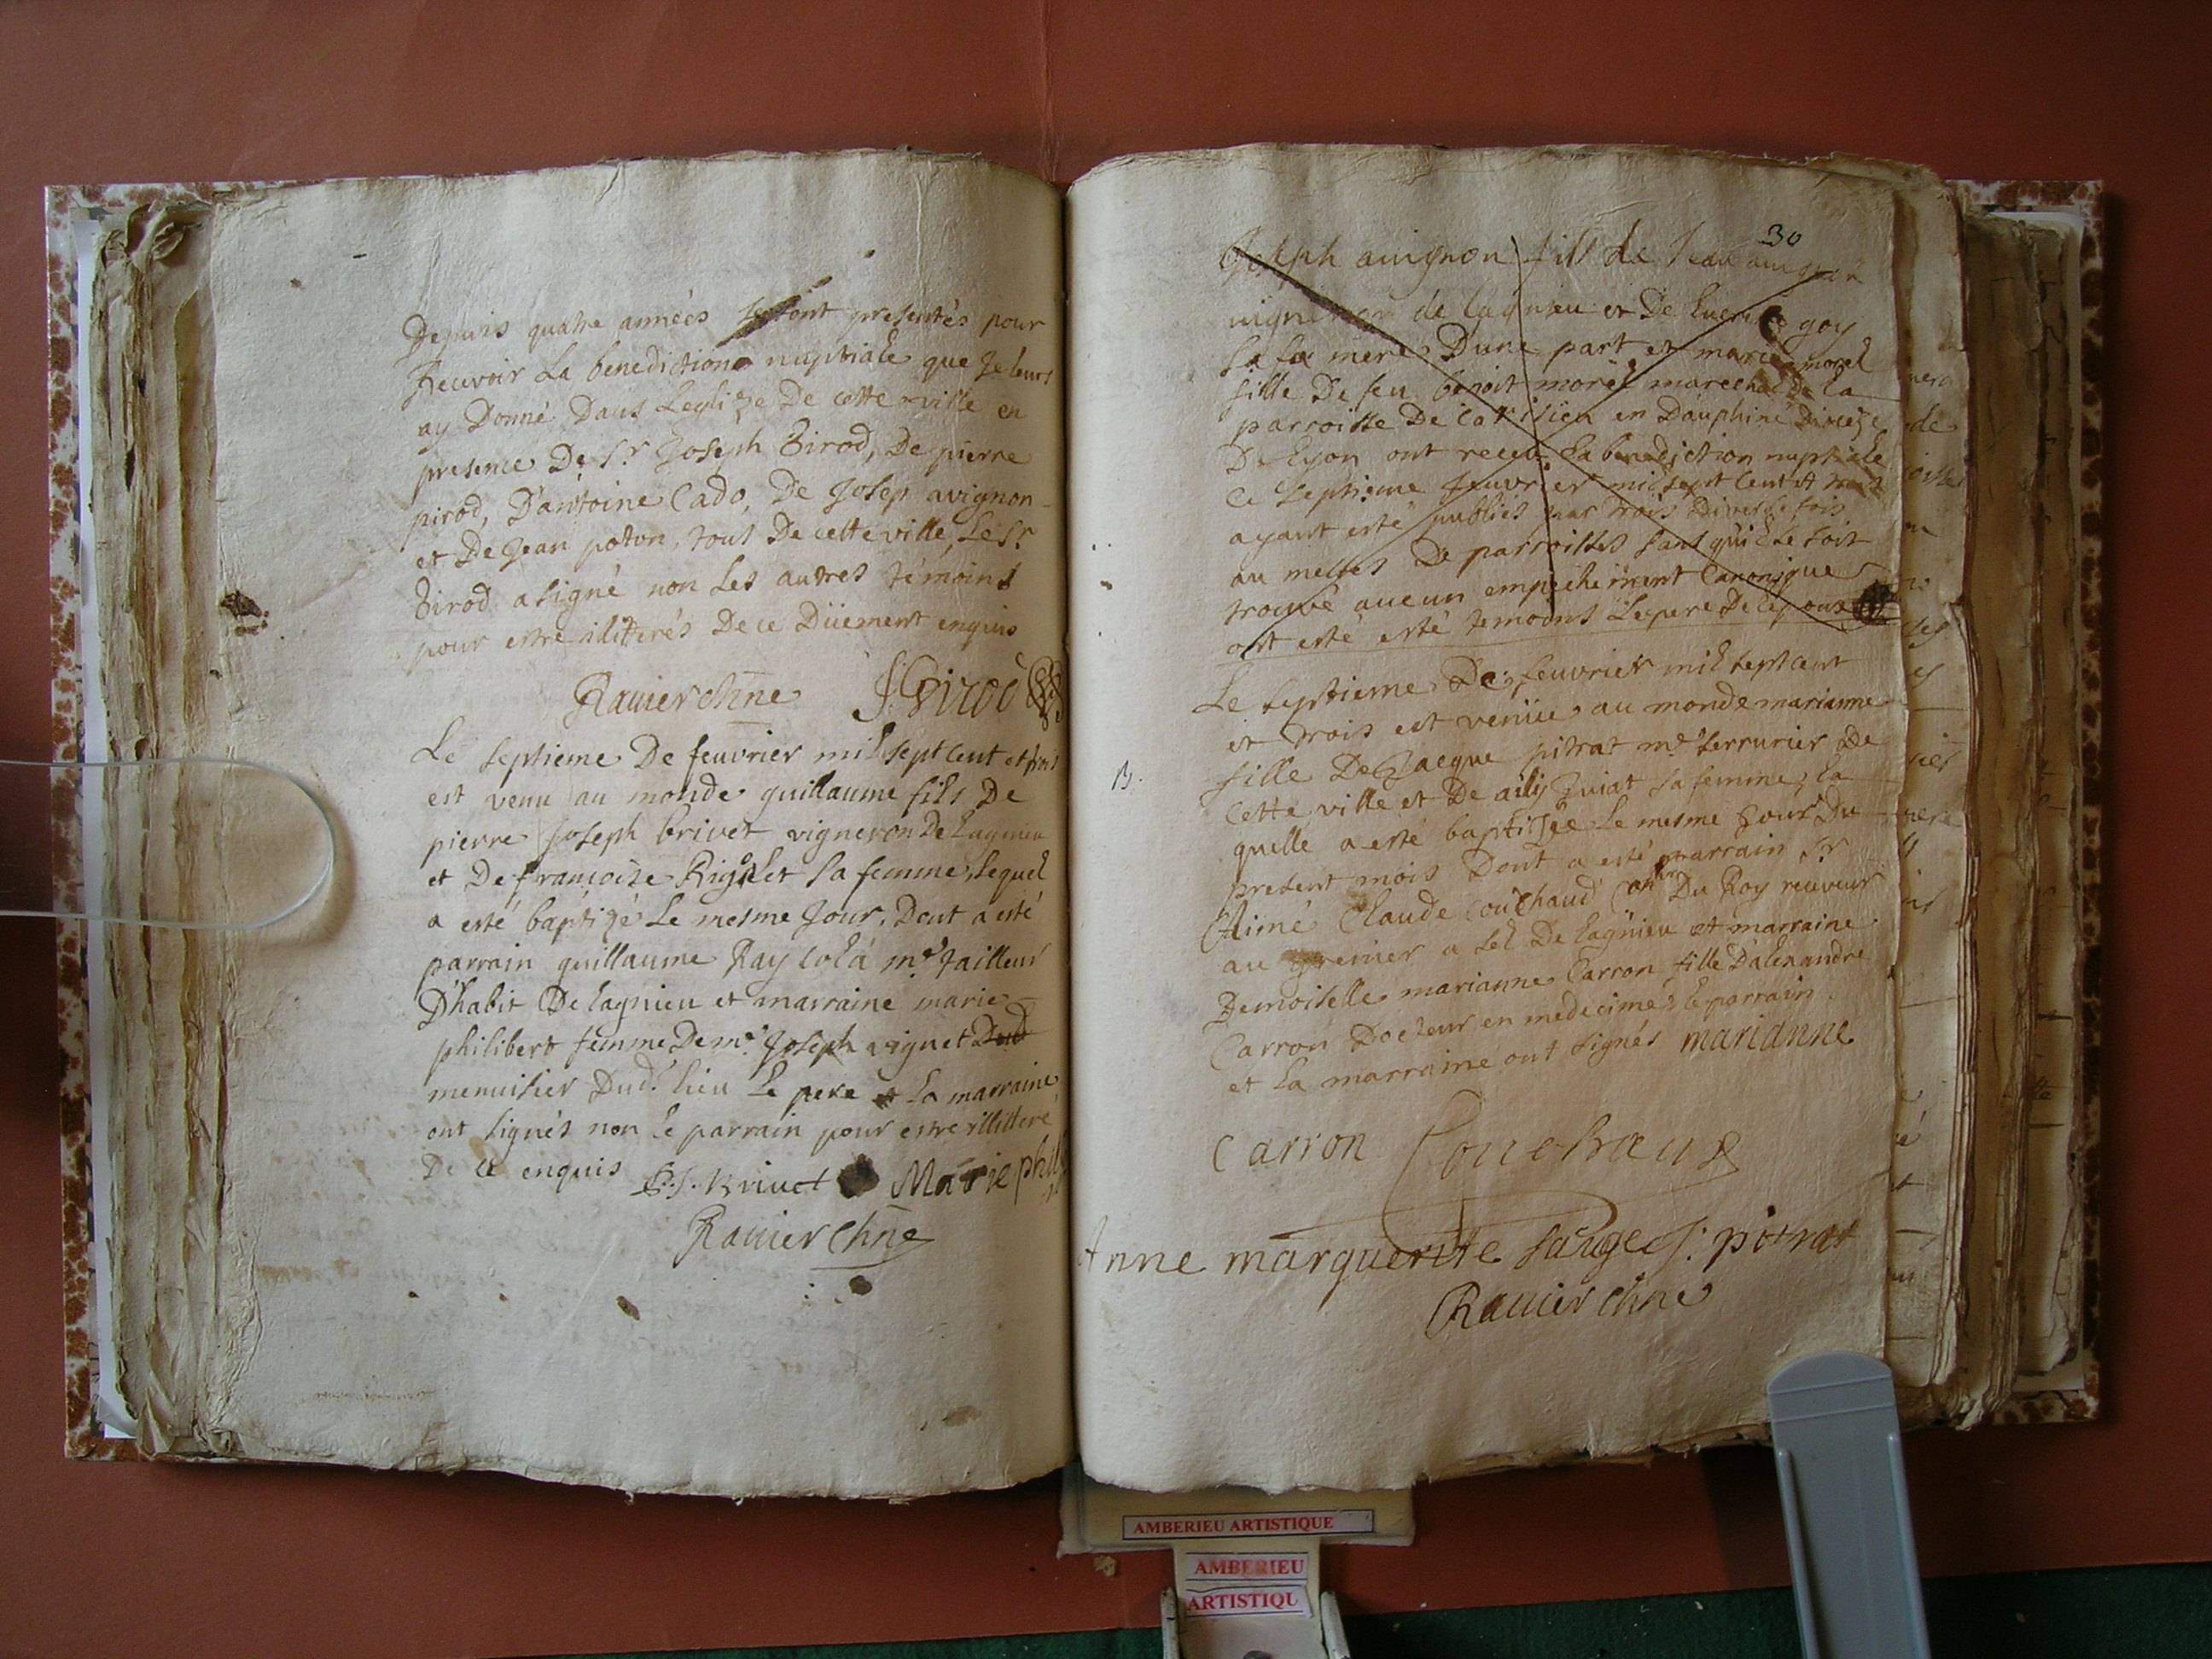 Depuis quatre années se sont presentés pour
Recevoir La benediction nuptiale que Je leurs
ay Donné Dans Leglize De cette ville en
presence De Sr Joseph Girod, De pierre
pirod, D'antoine Cado, De Josep avignon
et De Jean poton, tous De cette ville, Le Sr
Girod a signé non Les autres témoins
pour estre iliterés De ce Düement enquis
Ravier chne J Girod
Le septieme De feuvrier mil sept cent et trois
est venu au monde guillaume fils De
pierre Joseph brivet vigneron De Lagnieu
et De françoize Rigolet sa femme, Lequel
a esté baptizé Le mesme Jour, Dont a esté
parrain guillaume Ray me tailleur
D'habit De lagnieu et marraine marie
philibert femme De me Joseph vignet
menuisier Dud. lieu Le pere et La marraine
ont signés non Le parrain pour estre illitteré
De ce enquis P. J. Brivet Marie phili
Ravier Chne
30
Joseph avignon fils de Jean avignon
vigneron de lagnieu et De goy
sa mere D'une part et marie morel
fille De feu benoit morel marechal De La
parroisse De en Dauphiné Dioceze
De Lyon ont receu La benediction nuptiale
ce septieme feuvrier mil sept cent et trois
ayant esté publiés par trois Diverse fois
au messes De parroisses sans qu'il se soit
trouvé aucun empechement Canonique
ont esté esté temoins Le pere De
Le septieme De feuvrier mil sept cent
et trois est venüe au monde marianne
fille De Jacque pitrat me serrurier De
B.
Cette ville et De sa femme, La
quelle a esté baptizée Le mesme Jour Du
present mois Dont a esté parrain Sr
Aimé Claude Couchaud Coner Du Roy receveur
au grenier a sel De Lagnieu et marraine
Demoiselle marianne Carron fille D'alexandre
Carron Docteur en medecine, Le parrain
et La marraine ont signés marianne
Carron Couchaud
Anne marguerite J. pitrat
Ravier chne
AMBERIEU ARTISTIQUE
AMBERIEU
ARTISTIQU